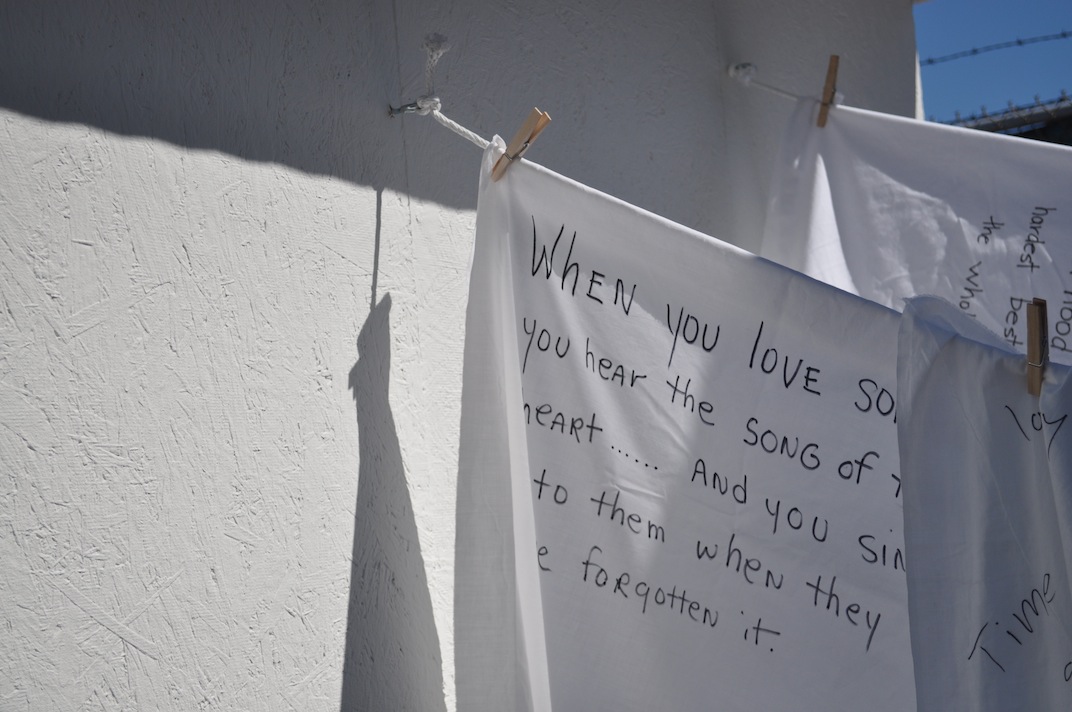 WHEN you lovE so
you hear the SONG of
heART...... And you sin
to them when they
e foRgotten it.
hardest best
the whol
Joy
Time